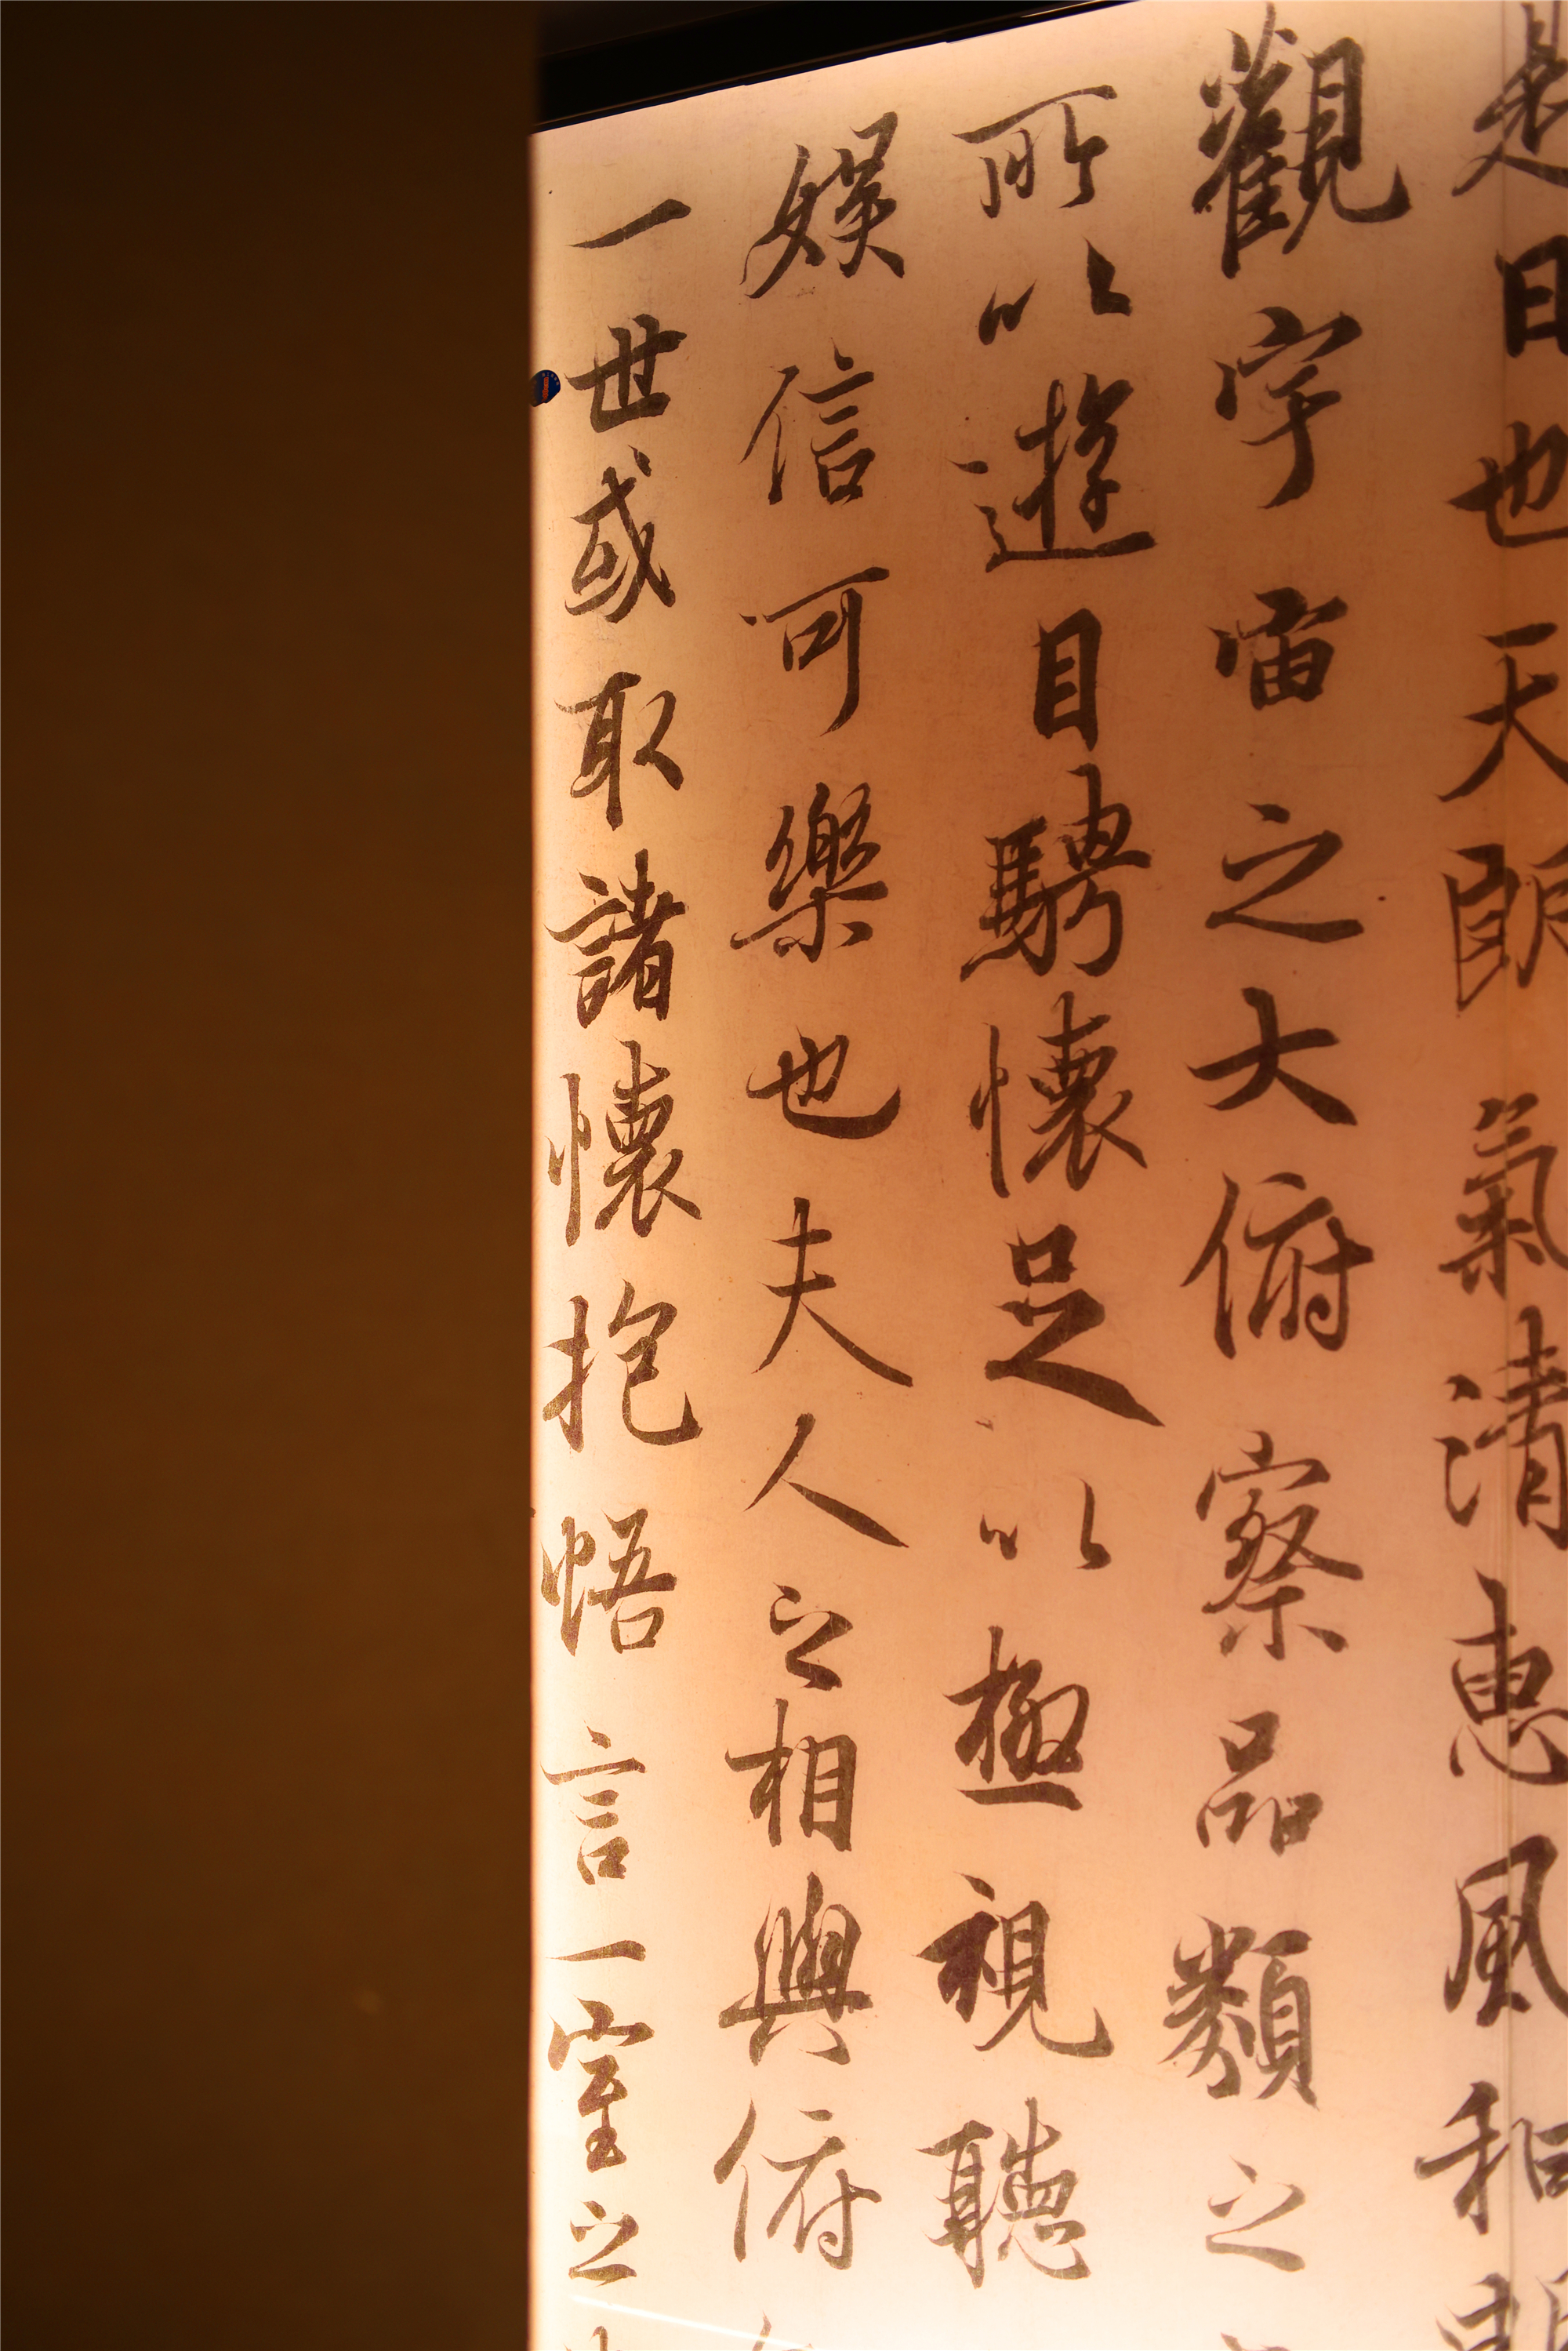 是日也天朗氣清惠風和
觀宇宙之大俯察品類之
所以遊目騁懷足以極視聽
娛信可樂也夫人之相與俯
一世或取諸懷抱悟言一室之